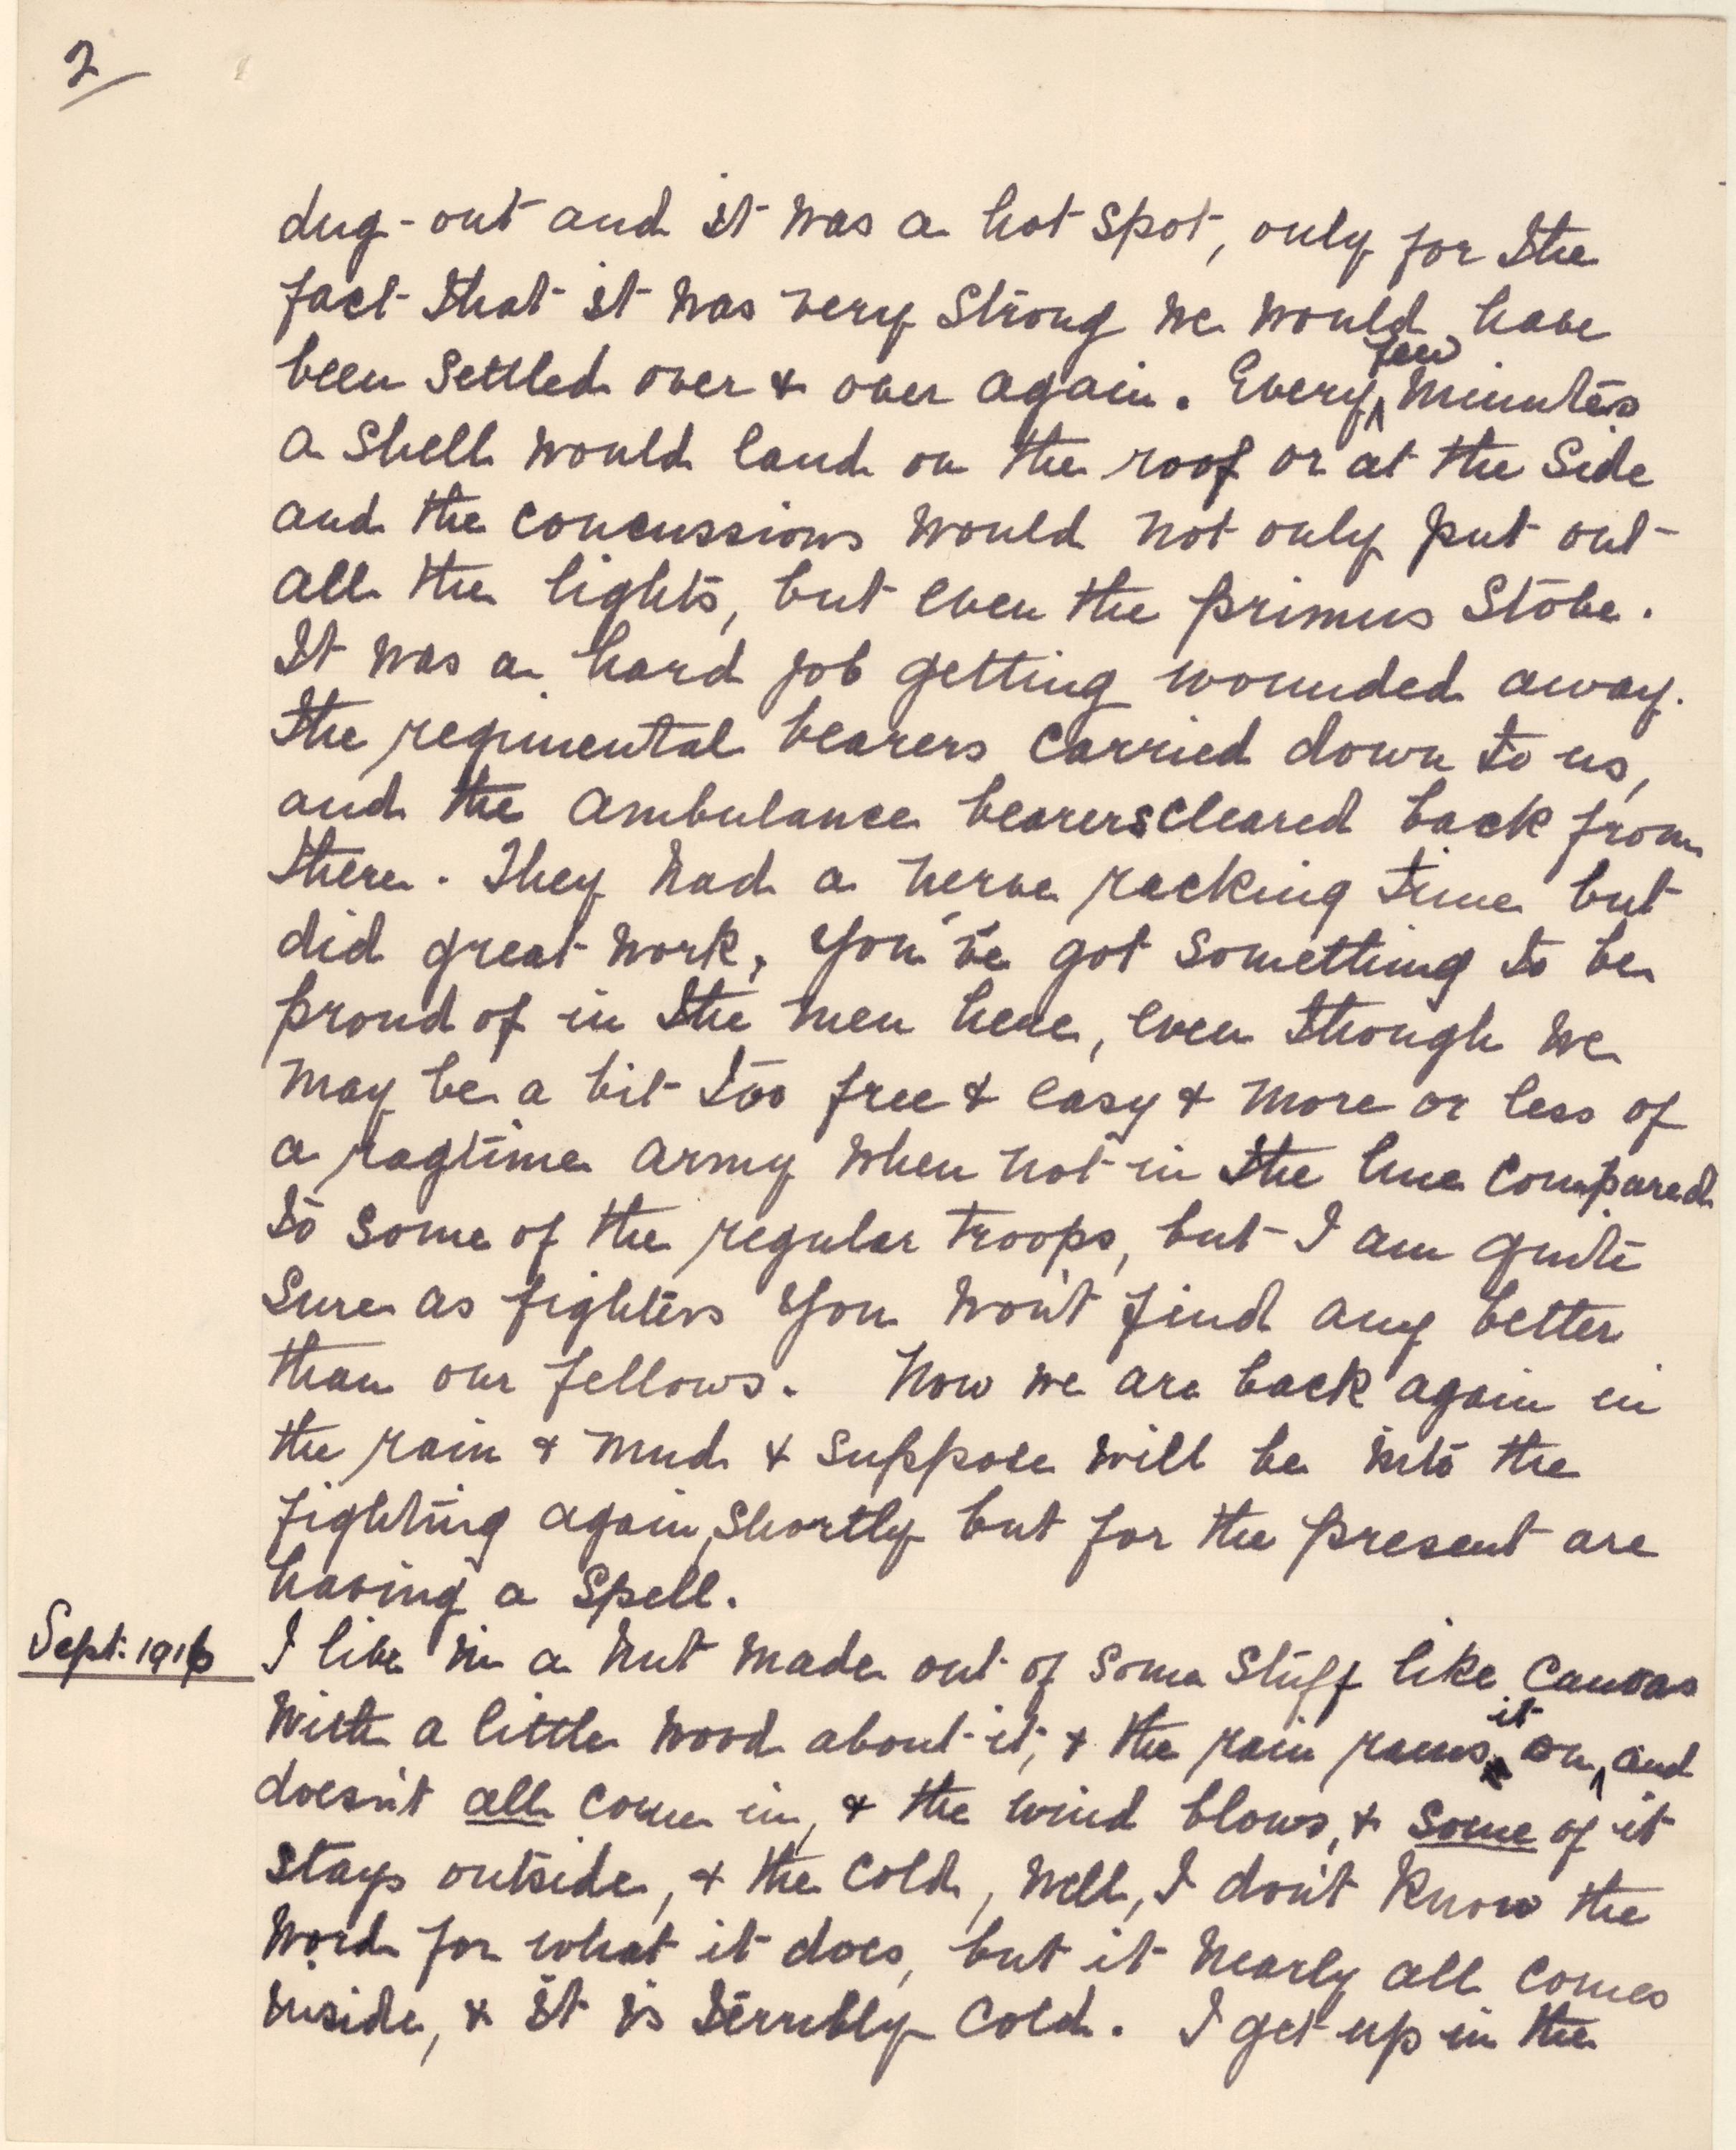 2
dug-out and it was a hot spot, only for the
fact that it was very strong we would have
been settled over & over again. Every few minutes
a shell would land on the roof or at the side
and the concussions would not only put out
all the lights, but even the primus stove.
It was a hard job getting wounded away.
The regimental bearers carried down to us,
and the ambulance bearers cleared back from
there. They had a nerve racking time but
did great work, you've got something to be
proud of in the men here, even though we
may be a bit too free & easy & more or less of
a ragtime army when not in the line compared
to some of the regular troops, but I am quite
sure as fighters you won't find any better
than our fellows. Now we are back again in
the rain & mud & suppose will be into the
fighting again, shortly but for the present are
having a spell.
Sept: 1916 I live in a hut made out of some stuff like canvas
with a little wood about it, & the rain rains on it, and
doesn't all come in, & the wind blows, & some of it
stays outside, & the cold, well, I don't know the
word for what it does, but it nearly all comes
inside, & it is terribly cold. I get up in the